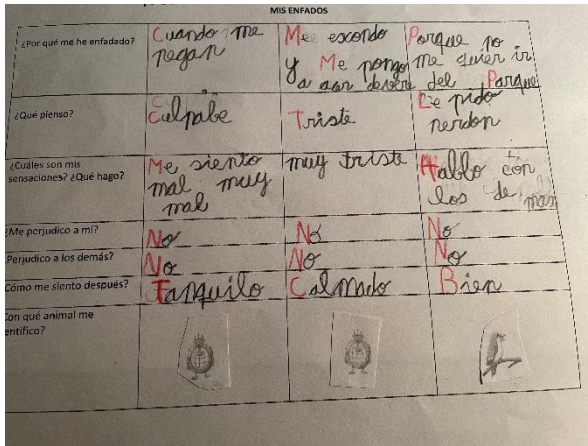 MIS ENFADOS
¿Por qué me he enfadado?
Cuando me
pegan
Me escondo
y Me pongo
a
Porque no
me quier ir
del Parque
¿Qué pienso?
Culpabe
Triste
Le pido
perdon
¿Cuáles son mis
sensaciones? ¿Qué hago?
Me siento
mal muy
mal
muy triste
Hablo con
los de mas
¿Me perjudico a mí?
No
No
No
Perjudico a los demás?
No
No
No
Cómo me siento después?
Tanquilo
Calmado
Bien
Con qué animal me
entifico?